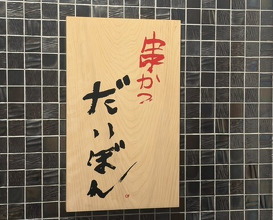 串かつ
だいぼん